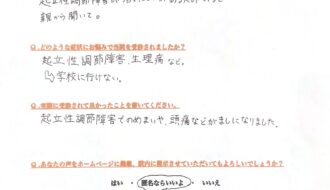 親から聞いて。
Q.どのような症状にお悩みで当院を受診されましたか？
起立性調節障害、生理痛など。
学校に行けない。
Q.実際に受診されて良かったことを書いてください。
起立性調節障害でのめまいや、頭痛などがましになりました。
Q.あなたの声をホームページに掲載、院内に掲示させていただいてもよろしいでしょうか？
はい ・ 匿名ならいいよ ・ いいえ